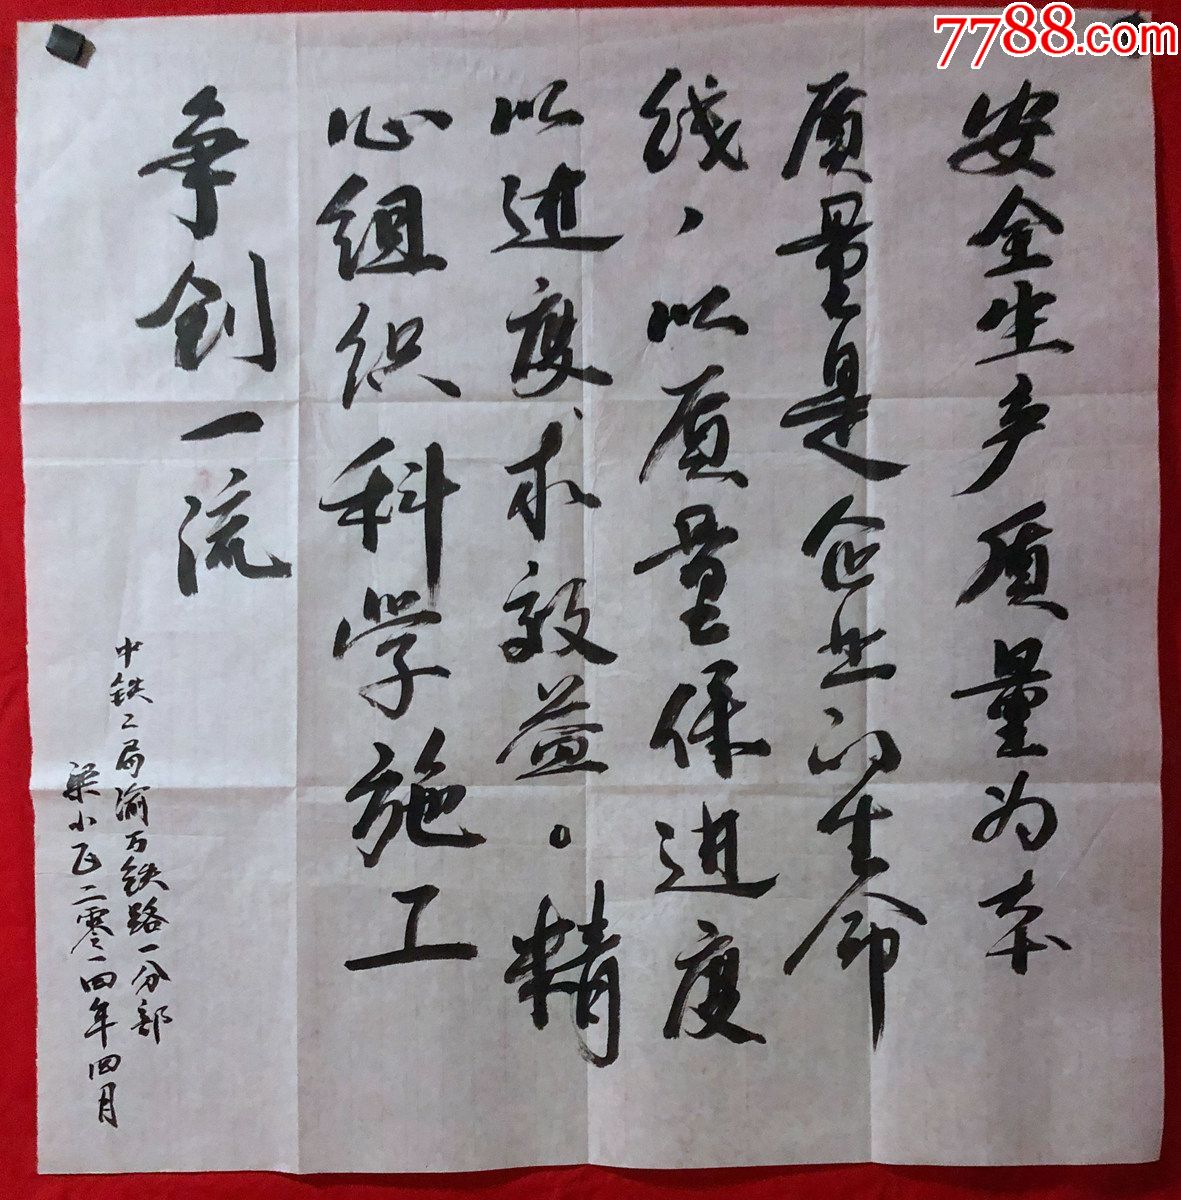 7788.com
安全生产质量为本
质量是企业的生命
线，以质量保进度
以进度求效益。精
心组织科学施工
争创一流
中铁二局渝万铁路一分部
梁小飞二零一四年四月